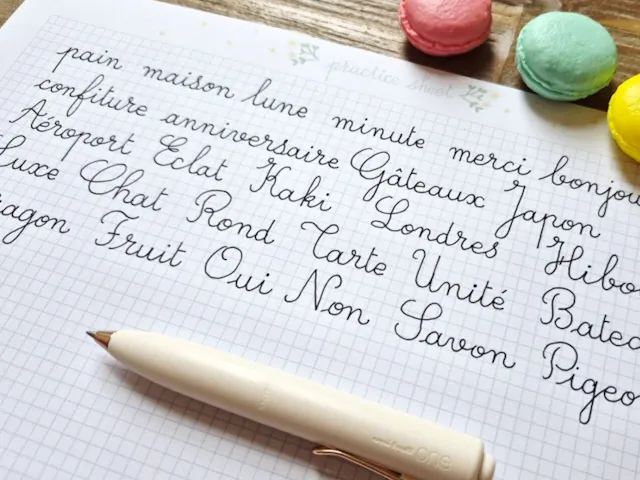 practice sheet
pain maison lune minute merci bonjou
confiture anniversaire Gâteaux Japon
Aéroport Eclat Kaki Londres Hibo
Luxe Chat Rond Tarte Unité Batea
ragon Fruit Oui Non Savon Pigeo
one